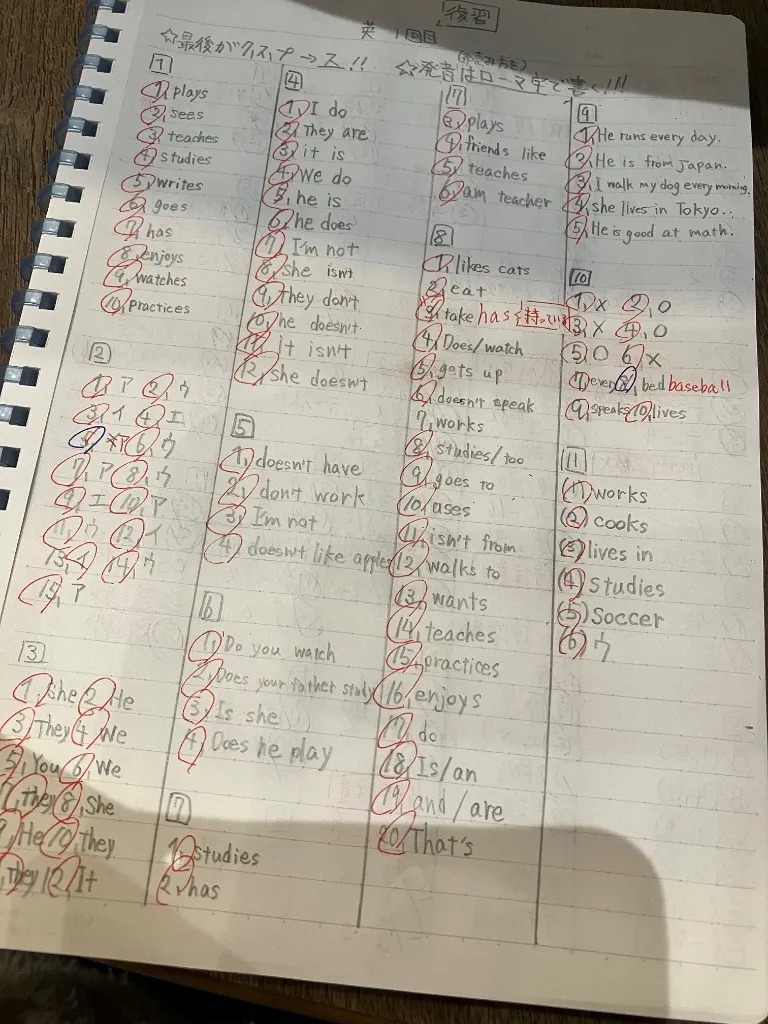 復習
英 1回目
☆最後がク,ス,プ→ス!!
☆発音はローマ字で書く!!!
1
1, plays
2, sees
3, teaches
4, studies
5, writes
6, goes
7, has
8, enjoys
9, watches
10, practices
2
1, ア 2, ウ
3, イ 4, エ
5, ア 6, ウ
7, ア 8, ウ
9, エ 10, ア
11, ウ 12, イ
13, イ 14, ウ
15, ア
3
1, She 2, He
3, They 4, We
5, You 6, We
7, They 8, She
9, He 10, They
They 12, It
4
1, I do
2, They are
3, it is
4, We do
5, he is
6, he does
7, I'm not
8, she isn't
9, They don't
10, he doesn't
11, It isn't
12, she doesn't
5
1, doesn't have
2, don't work
3, I'm not
4, doesn't like apples
6
1, Do you watch
2, Does your father study
3, Is she
4, Does he play
7
1, studies
2, has
7
3, plays
4, friends like
5, teaches
6, am teacher
8
1, likes cats
2, eat
3, take has 持っている
4, Does/watch
5, gets up
6, doesn't speak
7, works
8, studies/too
9, goes to
10, uses
11, isn't from
12, walks to
13, wants
14, teaches
15, practices
16, enjoys
17, do
18, Is/an
19, and/are
20, That's
9
1, He runs every day.
2, He is from Japan.
3, I walk my dog every morning.
4, she lives in Tokyo..
5, He is good at math.
10
1, X 2, O
3, X 4, O
5, O 6, X
7, every 8, bed baseball
9, speaks 10, lives
11
(1) works
(2) cooks
(3) lives in
(4) studies
(5) Soccer
(6) ウ